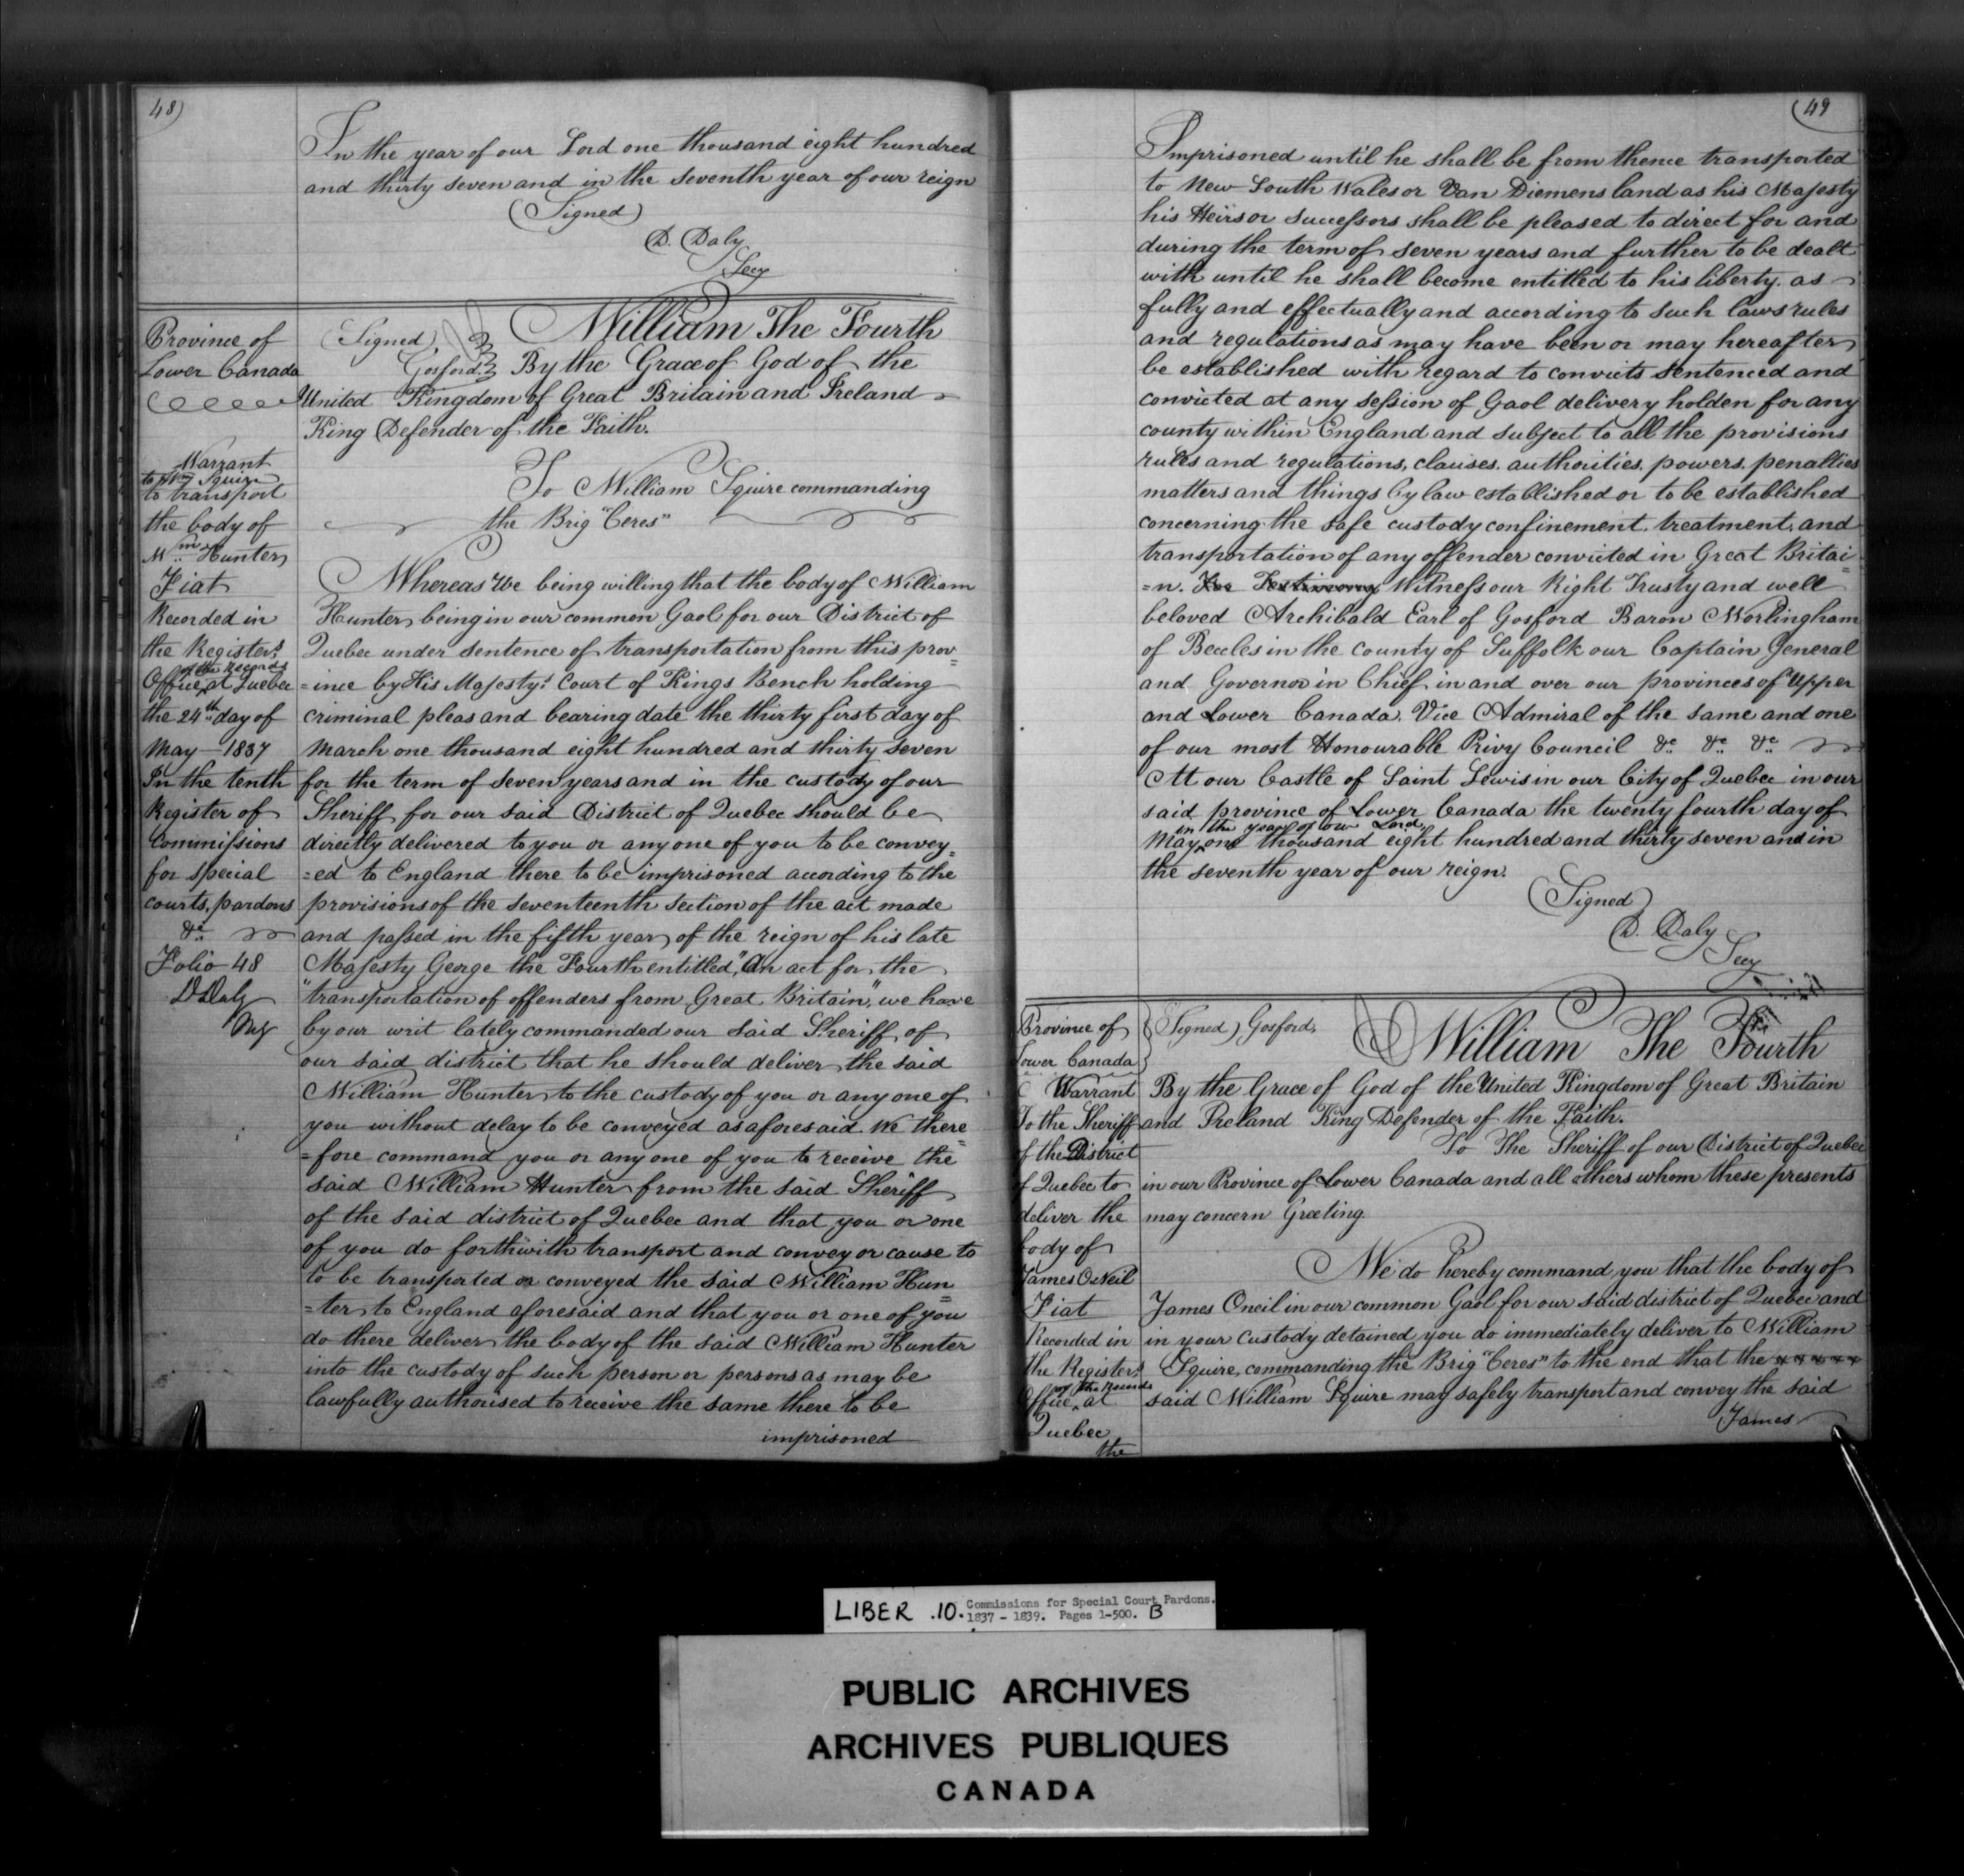 48)
In the year of our Lord one thousand eight hundred
and thirty seven and in the seventh year of our reign
(Signed)
D. Daly
Secy
Province of
Lower Canada
Warrant
to Wm Squire
to transport
the body of
Wm Hunter
Fiat
Recorded in
the Registers
of the Records
Office at Quebec
the 24th day of
May 1837
In the tenth
Register of
Commissions
for special
courts, pardons
&c
Folio 48
D Daly
(Signed) William The Fourth
Gosford. By the Grace of God of the
United Kingdom of Great Britain and Ireland
King Defender of the Faith.
To William Squire commanding
the Brig "Ceres"
Whereas We being willing that the body of William
Hunter being in our common Gaol for our District of
Quebec under sentence of transportation from this prov=
=ince by His Majesty's Court of Kings Bench holding
criminal pleas and bearing date the thirty first day of
March one thousand eight hundred and thirty seven
for the term of seven years and in the custody of our
Sheriff for our said District of Quebec should be
directly delivered to you or any one of you to be convey=
=ed to England there to be imprisoned according to the
provisions of the seventeenth section of the act made
and passed in the fifth year of the reign of his late
Majesty George the Fourth entitled, "An act for the
"transportation of offenders from Great Britain", we have
by our writ lately commanded our said Sheriff of
our said district that he should deliver the said
William Hunter to the custody of you or any one of
you without delay to be conveyed as aforesaid. We there=
=fore command you or any one of you to receive the
said William Hunter from the said Sheriff
of the said district of Quebec and that you or one
of you do forthwith transport and convey or cause to
to be transported or conveyed the said William Hun=
=ter to England aforesaid and that you or one of you
do there deliver the body of the said William Hunter
into the custody of such person or persons as may be
lawfully authorised to receive the same there to be
imprisoned
(49
Imprisoned until he shall be from thence transported
to New South Wales or Van Diemens land as his Majesty
his Heirs or successors shall be pleased to direct for and
during the term of seven years and further to be dealt
with until he shall become entitled to his liberty. as
fully and effectually and according to such laws rules
and regulations as may have been or may hereafter
be established with regard to convicts sentenced and
convicted at any session of Gaol delivery holden for any
county within England and subject to all the provisions
rules and regulations, clauses, authorities, powers, penalties
matters and things by law established or to be established
concerning the safe custody confinement, treatment, and
transportation of any offender convicted in Great Britai=
=n. In Testimony Witness our Right Trusty and well
beloved Archibald Earl of Gosford Baron Worlingham
of Beccles in the county of Suffolk our Captain General
and Governor in Chief in and over our provinces of Upper
and Lower Canada, Vice Admiral of the same and one
of our most Honourable Privy Council &c &c &c
At our Castle of Saint Lewis in our City of Quebec in our
said province of Lower Canada the twenty fourth day of
in the year of our Lord
May one thousand eight hundred and thirty seven and in
the seventh year of our reign.
(Signed)
D. Daly
Secy
Province of
Lower Canada
Warrant
To the Sheriff
of the District
of Quebec to
deliver the
body of
James O'Neil
Fiat
Recorded in
the Registers
of the Records
Office at
Quebec
the
(Signed) Gosford. William The Fourth
By the Grace of God of the United Kingdom of Great Britain
and Ireland King Defender of the Faith.
To The Sheriff of our District of Quebec
in our Province of Lower Canada and all others whom these presents
may concern Greeting.
We do hereby command you that the body of
James Oneil in our common Gaol for our said district of Quebec and
in your custody detained you do immediately deliver to William
Squire, commanding the Brig "Ceres" to the end that the
said William Squire may safely transport and convey the said
James
LIBER .10. Commissions for Special Court Pardons.
1837 - 1839. Pages 1-500. B
PUBLIC ARCHIVES
ARCHIVES PUBLIQUES
CANADA